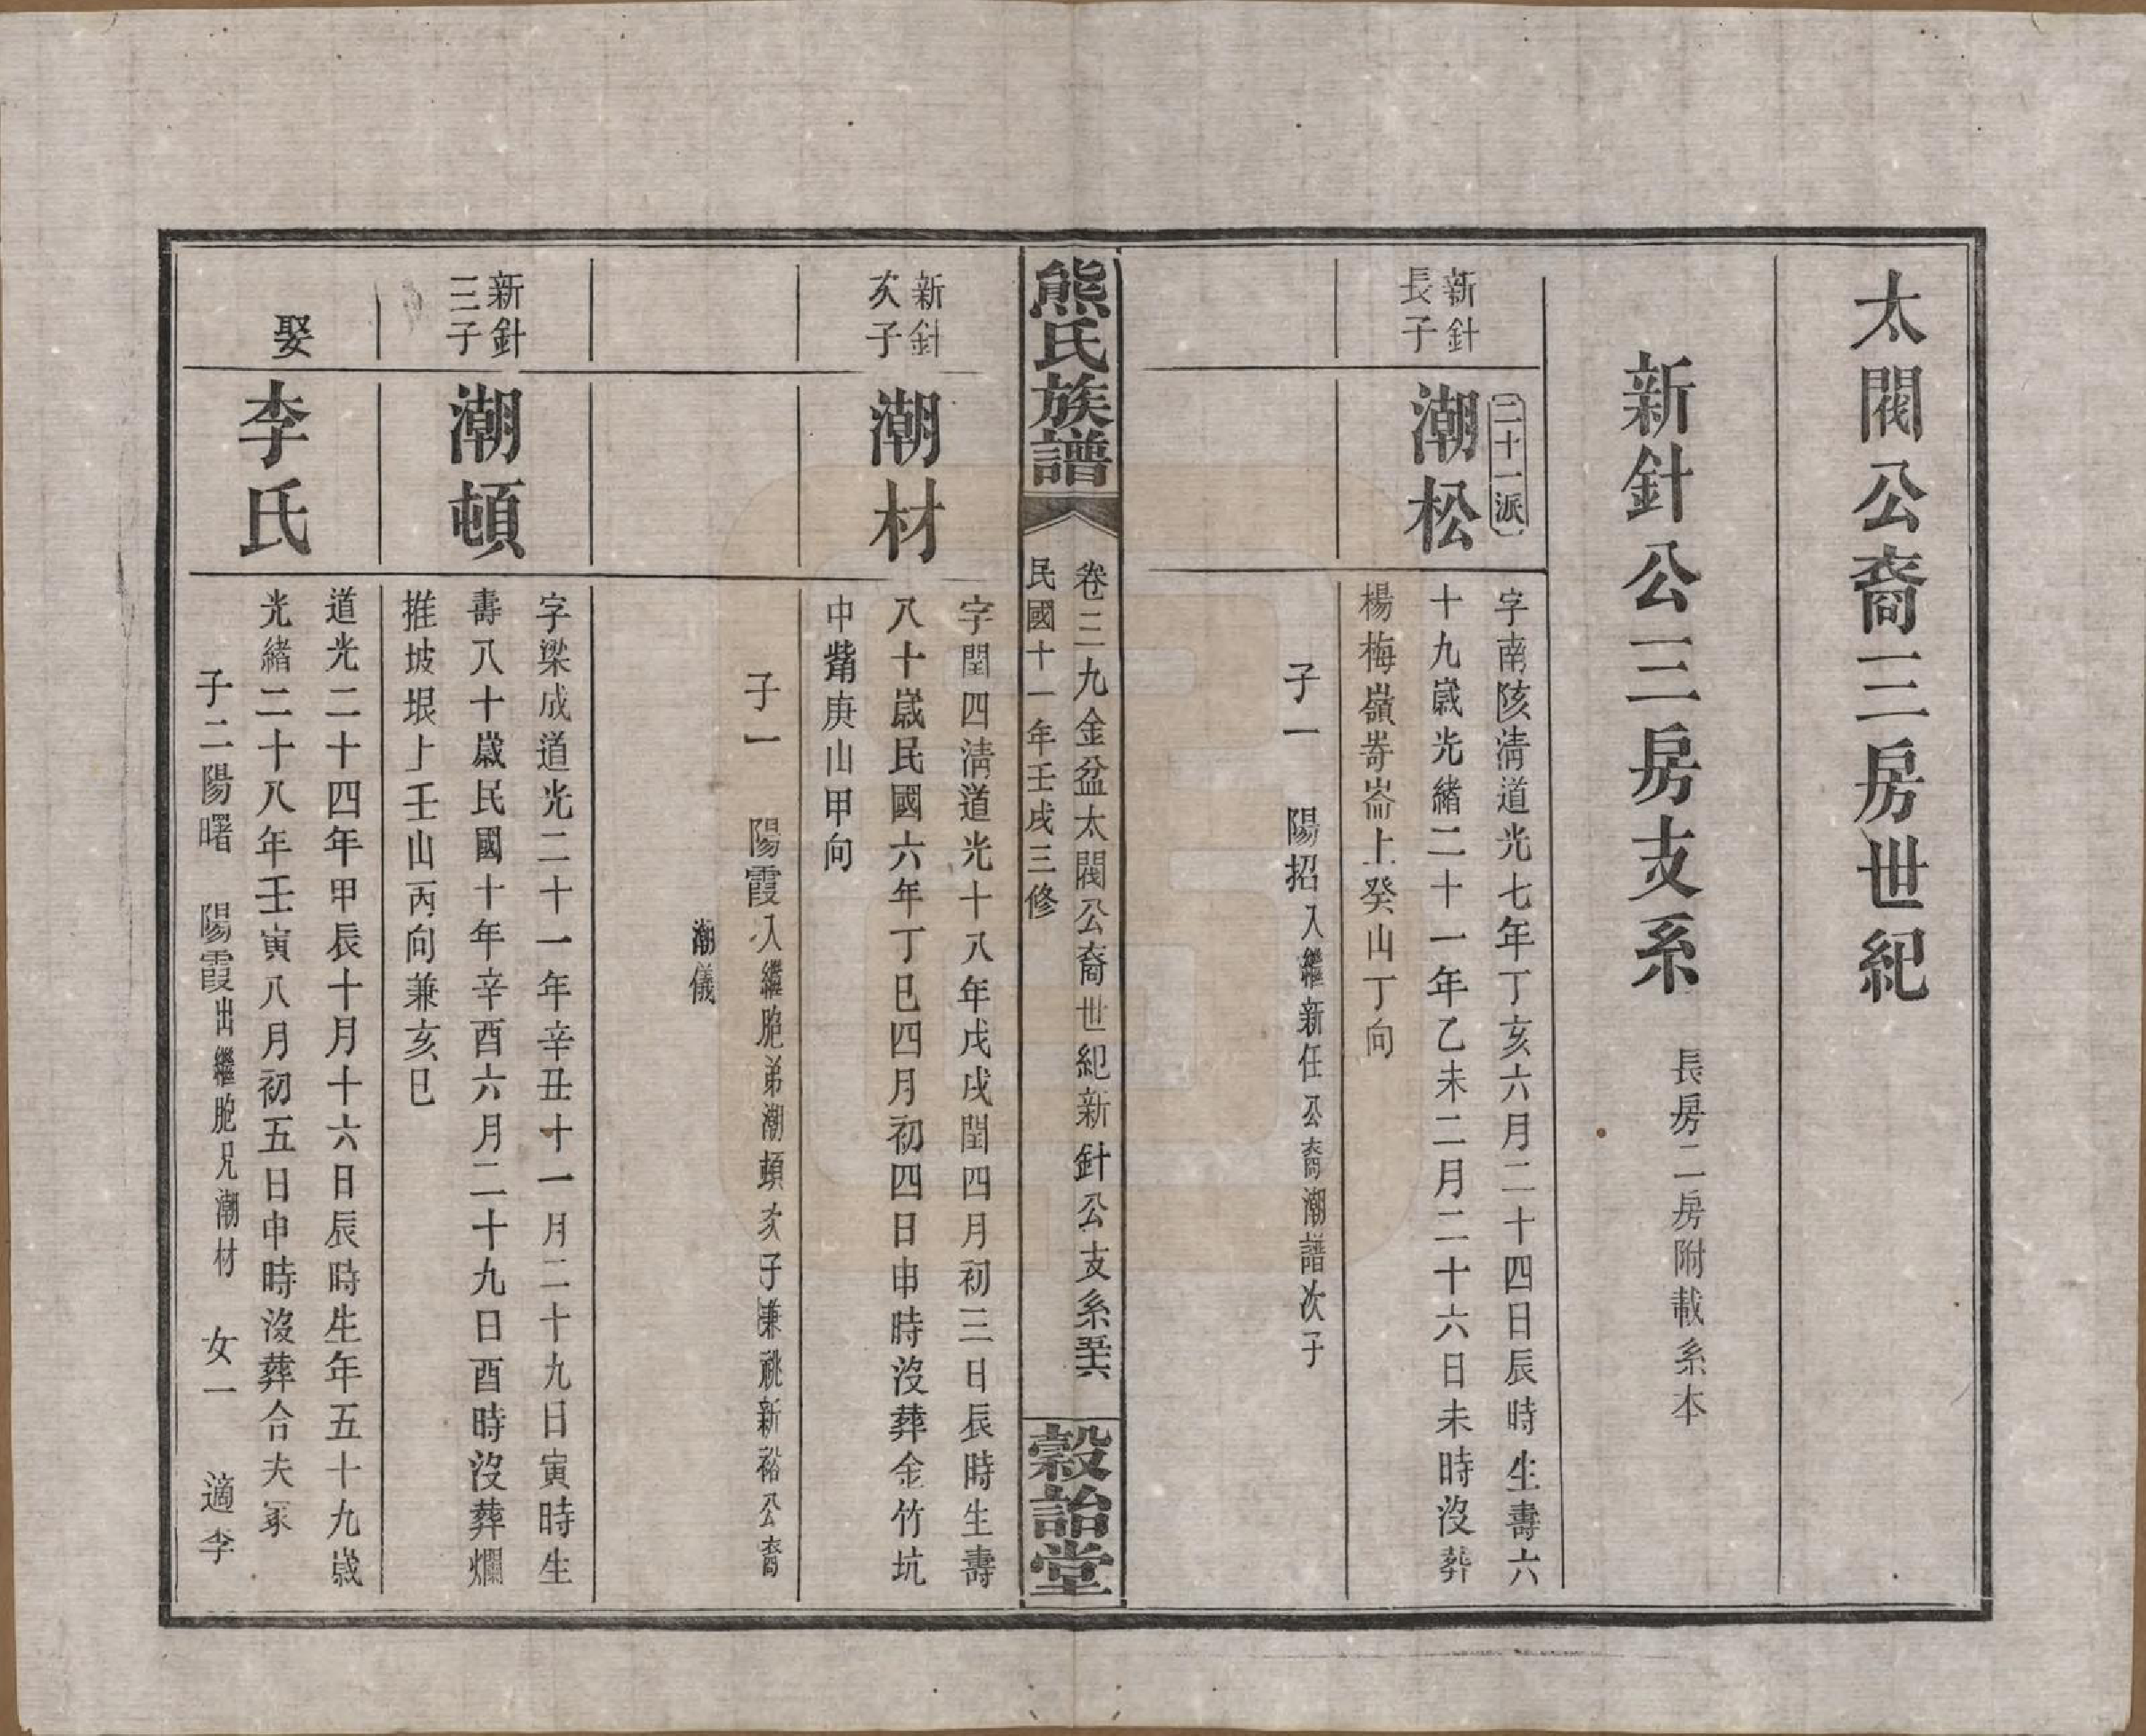 太閥公裔三房世紀
新針公三房支系 長房二房附載系本
新針
長子
二十一派
潮松
字南陔清道光七年丁亥六月二十四日辰時生壽六
十九歲光緒二十一年乙未二月二十六日未時沒葬
楊梅嶺崙上癸山丁向
子一 陽招入繼新任公裔潮譜次子
熊氏族譜
卷三九金盆太閥公裔世紀新針公支系
民國十一年壬戌三修
穀詒堂
新針
次子
潮材
字閏四清道光十八年戊戌閏四月初三日辰時生壽
八十歲民國六年丁巳四月初四日申時沒葬金竹坑
中觜庚山甲向
子一 陽霞入繼胞弟潮頓次子兼祧新裕公裔
潮儀
新針
三子
潮頓
字梁成道光二十一年辛丑十一月二十九日寅時生
壽八十歲民國十年辛酉六月二十九日酉時沒葬爛
推坡垠上壬山丙向兼亥巳
娶
李氏
道光二十四年甲辰十月十六日辰時生年五十九歲
光緒二十八年壬寅八月初五日申時沒葬合夫冢
子二陽曙 陽霞出繼胞兄潮材 女一 適李